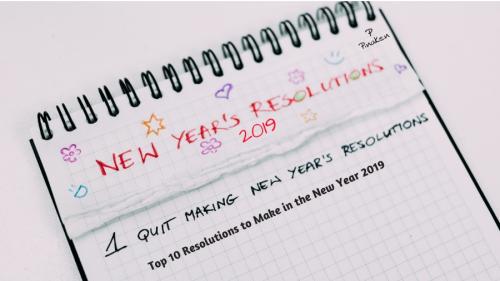 P
Pinakin
NEW YEAR'S RESOLUTIONS
2019
1 QUIT MAKING NEW YEAR'S RESOLUTIONS
Top 10 Resolutions to Make in the New Year 2019